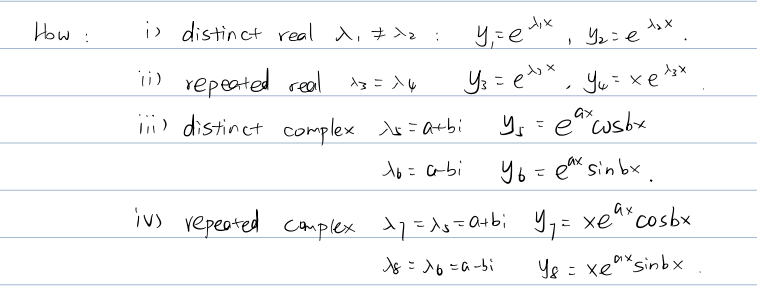 How : i) distinct real λ₁ ≠ λ₂ : y₁ = e^{λ₁x} , y₂ = e^{λ₂x} .
ii) repeated real λ₃ = λ₄ y₃ = e^{λ₃x} , y₄ = xe^{λ₃x} .
iii) distinct complex λ₅ = a+bi y₅ = e^{ax}cosbx
λ₆ = a-bi y₆ = e^{ax}sinbx .
iv) repeated complex λ₇ = λ₅ = a+bi y₇ = xe^{ax}cosbx
λ₈ = λ₆ = a-bi y₈ = xe^{ax}sinbx .